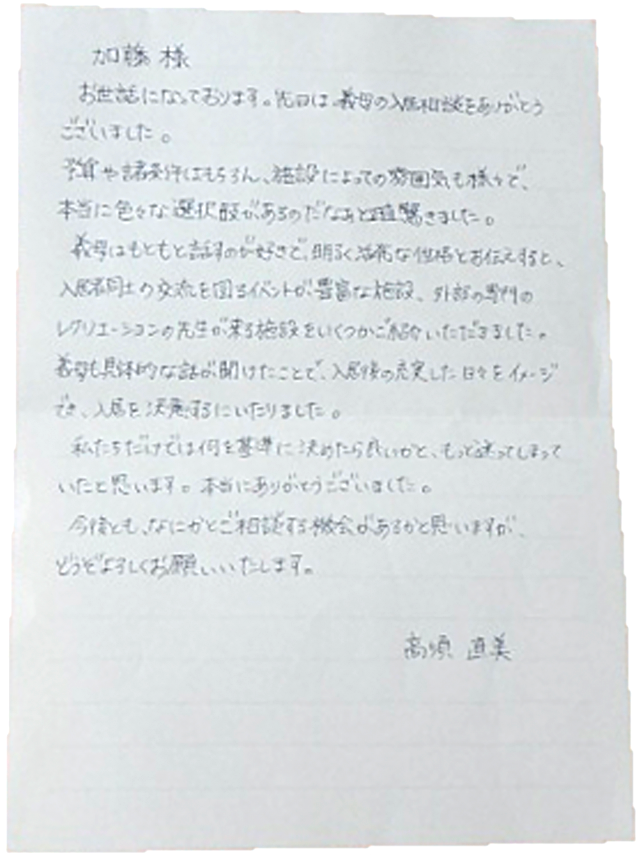 加藤 様
お世話になっております。先日は義母の入居相談をありがとう
ございました。
予算や諸条件はもちろん、施設によっての雰囲気も様々で、
本当に色々な選択肢があるのだなぁと驚きました。
義母はもともと話すのが好きで、明るく活発な性格とお伝えすると、
入居者同士の交流を図るイベントが豊富な施設、外部の専門の
レクリエーションの先生が来る施設をいくつかご紹介いただきました。
義母も具体的な話が聞けたことで、入居後の充実した日々をイメージ
でき、入居を決意するにいたりました。
私たちだけでは何を基準に決めたら良いかと、もっと迷ってしまって
いたと思います。本当にありがとうございました。
今後とも、なにかとご相談する機会があるかと思いますが、
どうぞよろしくお願いいたします。
高須 直美